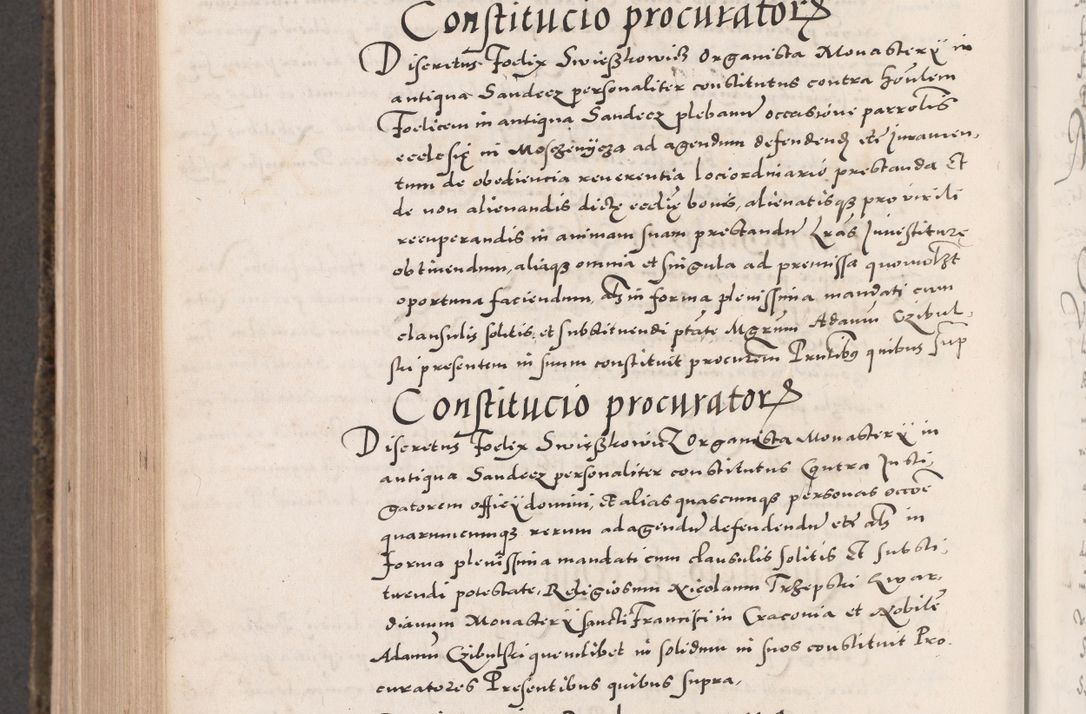 Constitucio procurator
Discretus Foelix Swieszkowic Organista Monastery in
antiqua Sandecz personaliter constitutus contra honlem
Foelicem in antiqua Sandecz plebanu occasione parrolis
ecclesię in Mosczenycza ad agendum defendend etc Juramen,
tum de obediencia reverentia lociordinario prestanda Et
de non alienandis dictę ecclię bonis, alienatisq pro virili
recuperandis in animam suam prestandu Lras Juvestiturę
obtinendum, aliaq omnia et singula ad premissa quomolzt
oportuna faciendum, als in forma plenissima mandati cum
clausulis solitis et substituendi ptate Mgrum Adamu Czibul,
ski presentem in suum constituit procurem Prntibus quibus sup
Constitucio procurator
Discretus Foelix Swięszkowicz Organista Monastery in
antiqua Sandecz personaliter constitutus Contra Insti,
gatorem officy domini, Et alias quascunq personas occoe
quarumcunq rerum ad agendu defendendu etc als in
forma plenissima mandati cum clausulis solitis Et substi,
tuendi potestate, Religiosum Nicolaum Trzepski Gwar,
dianum Monastery sancti Francisci in Cracovia et Nobile
Adamu Czibulski quemlibet in solidum in suos constituit Pro
curatores Presentibus quibus supra,